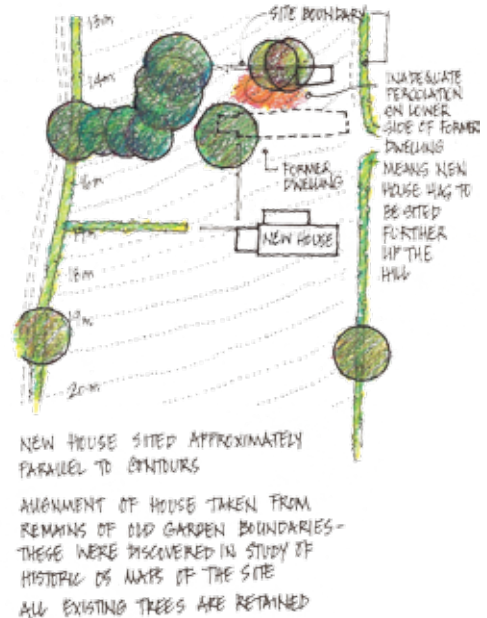 13m
SITE BOUNDARY
14m
INADEQUATE
PERCOLATION
ON LOWER
SIDE OF FORMER
DWELLING
MEANS NEW
HOUSE HAS TO
BE SITED
FURTHER
UP THE
HILL
FORMER
DWELLING
16m
17m
NEW HOUSE
18m
19m
20m
NEW HOUSE SITED APPROXIMATELY
PARALLEL TO CONTOURS
ALIGNMENT OF HOUSE TAKEN FROM
REMAINS OF OLD GARDEN BOUNDARIES-
THESE WERE DISCOVERED IN STUDY OF
HISTORIC OS MAPS OF THE SITE
ALL EXISTING TREES ARE RETAINED